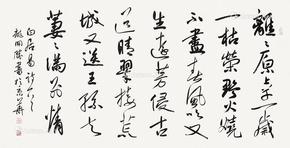 離〻原上草一歲
一枯榮野火燒
不盡春風吹又
生遠芳侵古
道晴翠接荒
城又送王孫去
萋〻滿別情
白居易詩
龍開勝書於京華